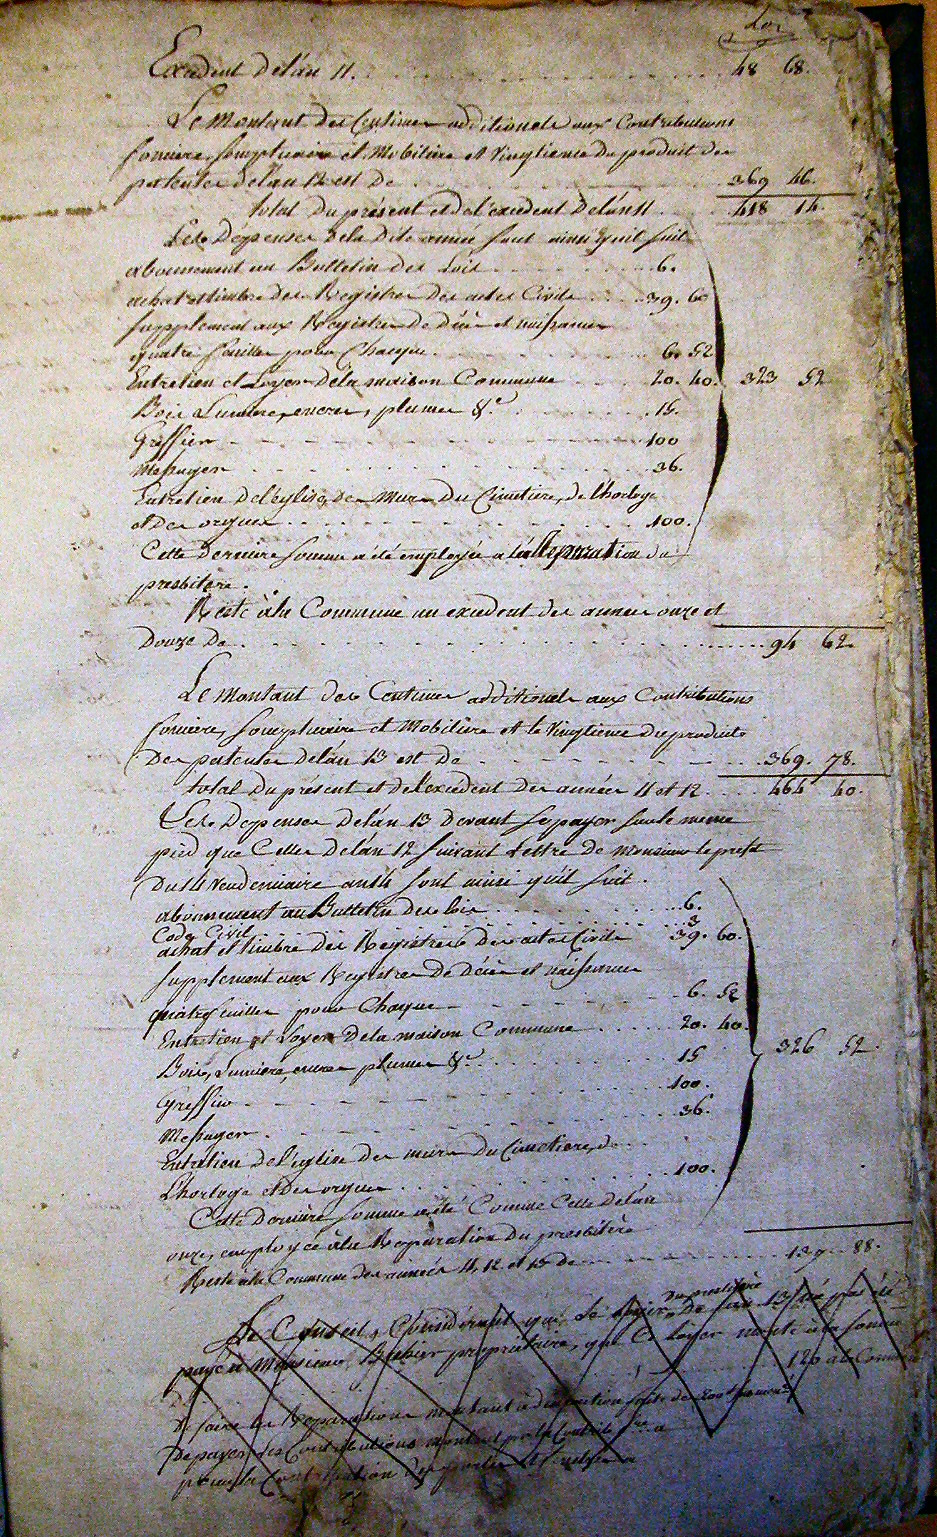 Excedent de l'an 11. 48 68.
Le Montant des Centimes additionels aux Contributions
fonciere, somptuaire et Mobiliere et Vingtieme du produit des
patentes de l'an 12 est de 369 46.
total du présent et de l'excedent de l'an 11. 418 14.
Les Dépenses de la Dite année sont ainsi qu'il suit
abonnement au Bulletin des Lois 6.
achat et timbre des Registres des actes Civils 39. 60
supplement aux Registres de Décès et naissances
quatre feuilles pour Chaque 6. 52
Entretien et Loyer de la maison Commune 20. 40. 323 52
Bois Lumiere, encre, plumes &c 15.
Greffier 100
Messager 36.
Entretien de l'église, des Murs du Cimetiere, de l'horloge
et des orgues 100.
Cette derniere somme a été employée a la Reparation du
presbitère.
Reste à la Commune un excedent des années onze et
douze de 94 62.
Le Montant des Centimes additionels aux Contributions
fonciere, somptuaire et Mobiliere et le Vingtieme du produit
Des patentes de l'an 13 est de 369. 78.
total du présent et de l'excedent des années 11 et 12 464 40.
Les Depenses de l'an 13 devant se payer sur le meme
pied que Celles de l'an 12 suivant Lettre de Monsieur le prefet
du 14 Vendemiaire an 14 sont ainsi qu'il suit.
abonnement au Bulletin des lois 6.
Code Civil 3
achat et timbre des Registres des actes Civils 39. 60.
supplement aux Registres de Décès et naissances
quatre feuilles pour Chaque 6. 52
Entretien et Loyer de la maison Commune 20. 40. 326 52.
Bois, Lumiere, encre plumes &c 15
Greffier 100.
Messager. 36.
Entretien de l'église des murs du Cimetiere, de
L'horloge et des orgues 100.
Cette dernière somme a été Comme Celle de l'an
onze, employée à la Reparation du presbitère
Reste à la Commune des années 11, 12 et 13 de 139. 88.
du presbitère
Le Conseil, Considérant que le loyer de l'an 13 n'a pas été
payé à Monsieur propriétaire, que Ce Loyer monte à la somme
de 120
de faire les Reparations
de payer les Contributions
pour la Contribution